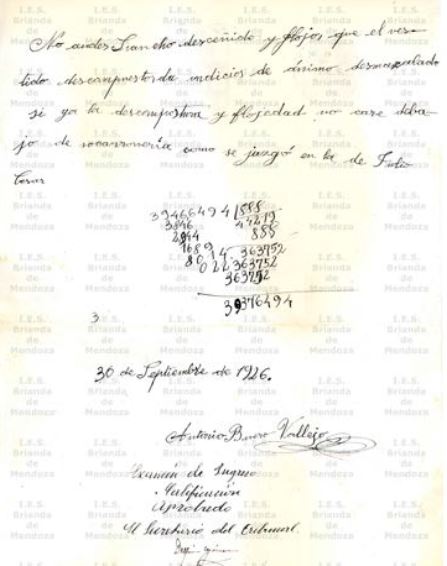 No andes Sancho desceñido y flojo, que el ves-
tido descompuesto da indicios de ánimo desmazalado
si ya la descompostura y flojedad no cae deba-
jo de socarronería como se juzgó en la de Julio
Cesar
39466494 888
3946
2944
1689 888
8014 363752
022 363752
39376494
3.
30 de Septiembre de 1926.
Antonio Buero Vallejo
Examen de Ingreso
Calificación
Aprobado
El Secretario del Tribunal.
I.E.S. Brianda de Mendoza